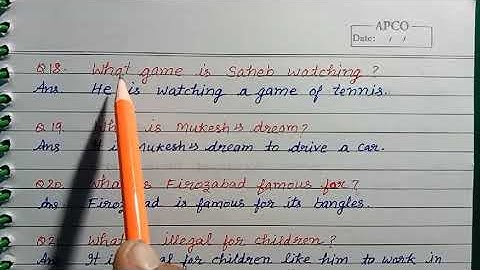 APCO
Date: / /
Q18. What game is Saheb watching?
Ans He is watching a game of tennis.
Q19. is Mukesh's dream?
Ans is Mukesh's dream to drive a car.
Q20. What is Firozabad famous for?
Ans Firozabad is famous for its bangles.
What illegal for children?
Ans It is for children like him to work in